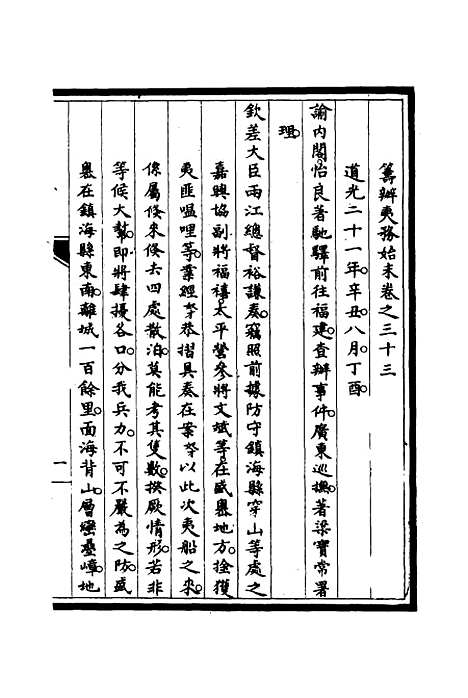 籌辦夷務始末卷之三十三
道光二十一年辛丑八月丁酉
諭內閣怡良著馳驛前往福建查辦事件廣東巡撫著梁寶常署
理
欽差大臣兩江總督裕謙奏竊照前據防守鎮海縣穿山等處之
嘉興協副將福禧太平營參將文斌等在盛嶴地方拴獲
夷匪嗢哩等業經奴才恭摺具奏在案奴才以此次夷船之來
條屬倏來倏去四處散泊莫能考其隻數揆厥情形若非
等候大幫即將肆擾各口分我兵力不可不嚴為之防盛
嶴在鎮海縣東南離城一百餘里面海背山層巒疊嶂地
一